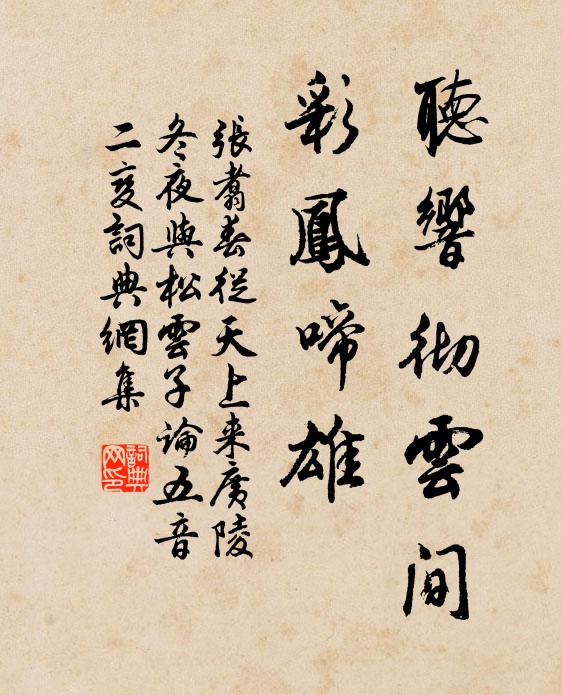 聽響彻雲间
彩鳳啼雄
張翥春從天上来廣陵
冬夜與松雲子論五音
二变詞典網集
詞典网印